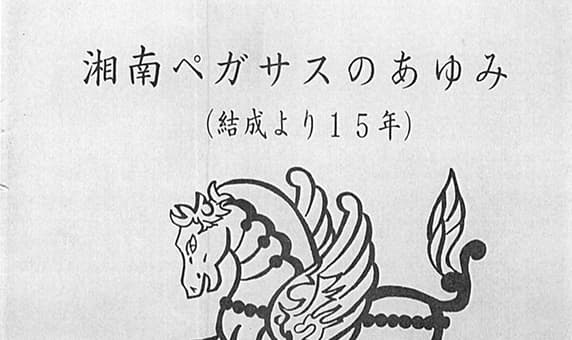 湘南ペガサスのあゆみ
(結成より15年)